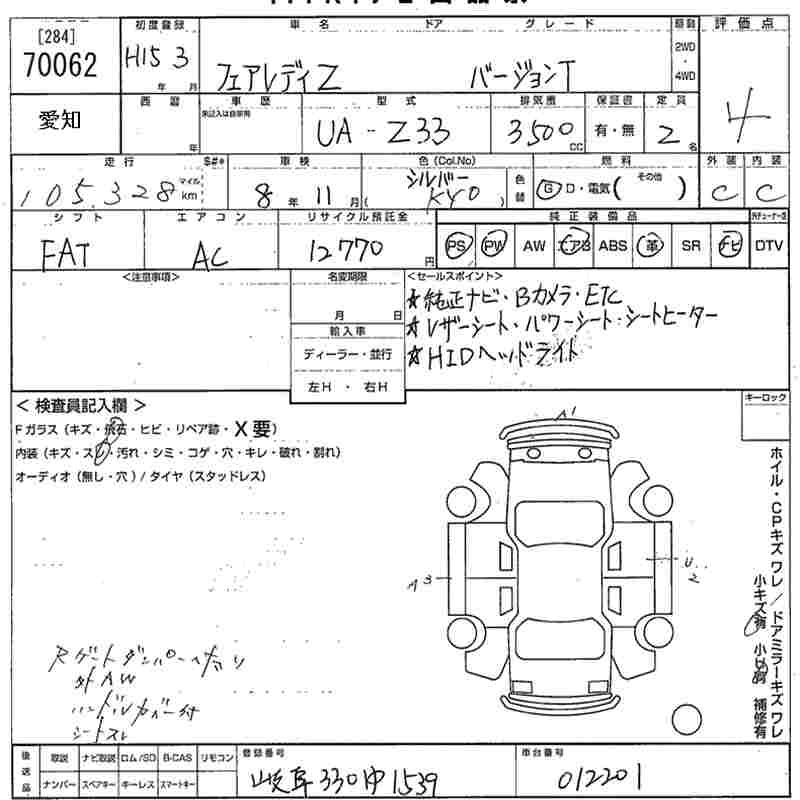 [284]
70062
初度登録
H15 3
年 月
車名 ドア グレード
フェアレディZ バージョンT
駆動
2WD
・
4WD
評価点
4
愛知
西暦
年
車歴
未記入は自家用
型式
UA-Z33
排気量
3500
CC
保証書
有・無
定員
2
名
走行
105,328
マイル
km
S#*
車検
8 年 11 月
色(Col.No)
シルバー
( KY0 )
色替
燃料
G D・電気( その他 )
外装
C
内装
C
シフト
FAT
エアコン
AC
リサイクル預託金
12770 円
純正装備品
PS PW AW エアB ABS 革 SR ナビ
DTV
<注意事項>
名変期限
月 日
輸入車
ディーラー・並行
左H ・ 右H
<セールスポイント>
☆純正ナビ・Bカメラ・ETC
☆レザーシート・パワーシート・シートヒーター
☆HIDヘッドライト
<検査員記入欄>
Fガラス(キズ・飛石・ヒビ・リペア跡・X要)
内装(キズ・スレ・汚れ・シミ・コゲ・穴・キレ・破れ・割れ)
オーディオ(無し・穴)/タイヤ(スタッドレス)
キーロック
A1
A3
U2
ホイル・CPキズ ワレ/ドアミラーキズ ワレ
小キズ有 小凹有 補修有
Rゲートダンパーヘタリ
外AW
ハンドルカバー付
シートスレ
後送品
取説 ナビ取説 ロム/SD B-CAS リモコン
ナンバー スペアキー キーレス スマートキー
登録番号
岐阜330ゆ1539
車台番号
012201